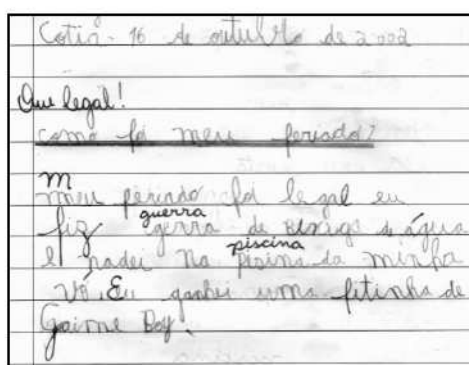 Cotia - 16 de outubro de 2002
Que legal!
como foi meu feriado?
m
meu feriado foi legal eu
guerra
fiz gerra de bixiga de água
piscina
e nadei na pisina da minha
vó. Eu ganhei uma fitinha de
Gaime Boy.